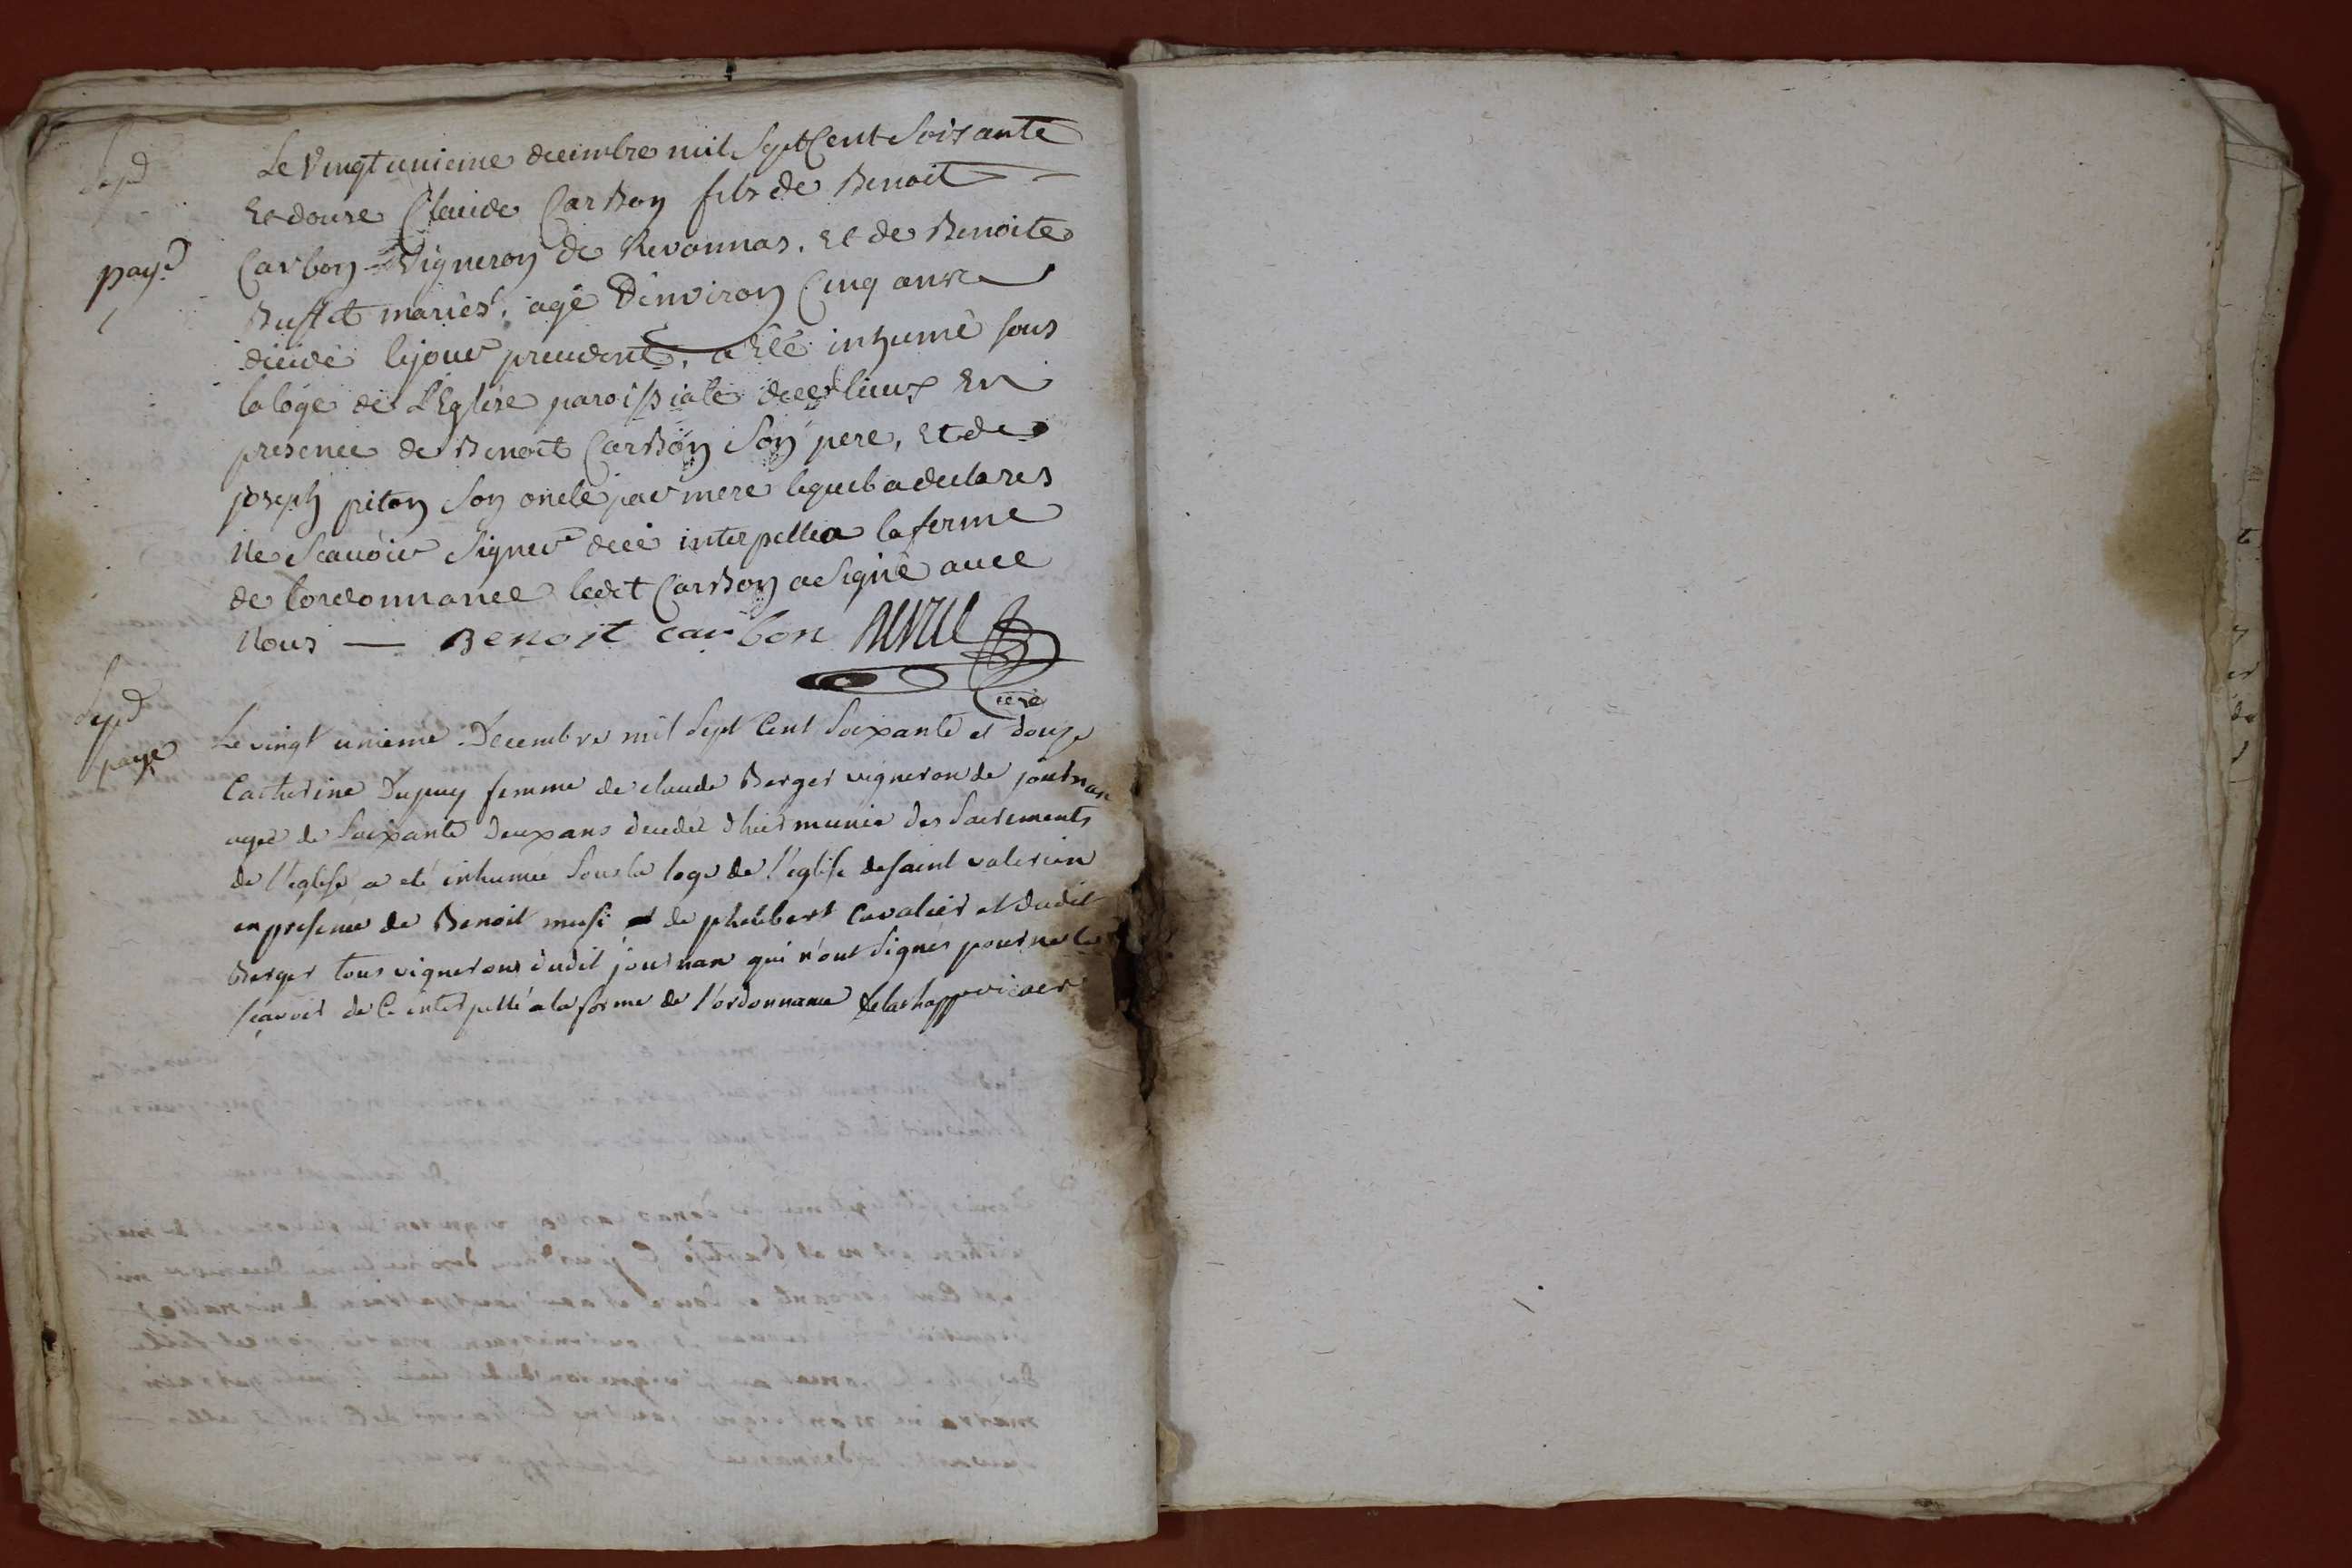 Sepd
Le vingt unieme decembre mil Sept Cent Soixante
Et douze Claude Carbon fils de Benoit
paye
Carbon Vigneron de Revonnas, Et de Benoite
Buffet mariés, agé Denviron Cinq ans
décédé le jour precedent, a Eté inhumé sous
la loge de L'Eglise paroissiale de ces lieux En
presence de Benoit Carbon Son pere, Et de
joseph piton Son oncle par mere lequel a declares
Ne Scavoir Signer de ce interpellea la forme
de lordonnance ledt Carbon a Signé avec
Nous — Benoit carbon
Curé
Sepd
Le vingt unieme Decembre mil Sept Cent Soixante et douze
paye
Catherine Dupuy femme de claude Berger vigneron de journan
agée de Soixante deux ans décédée d'hier munie des Sacrements
de l'eglise a eté inhumée Sous la loge de l'eglise de saint valerien
en presence de Benoit musi et de philibert Cavalier et dudit
Berger tous vignerons dudit journan qui n'ont Signés pour ne le
scavoir de Ce interpellé a la forme de l'ordonnance Delachapp vicaer